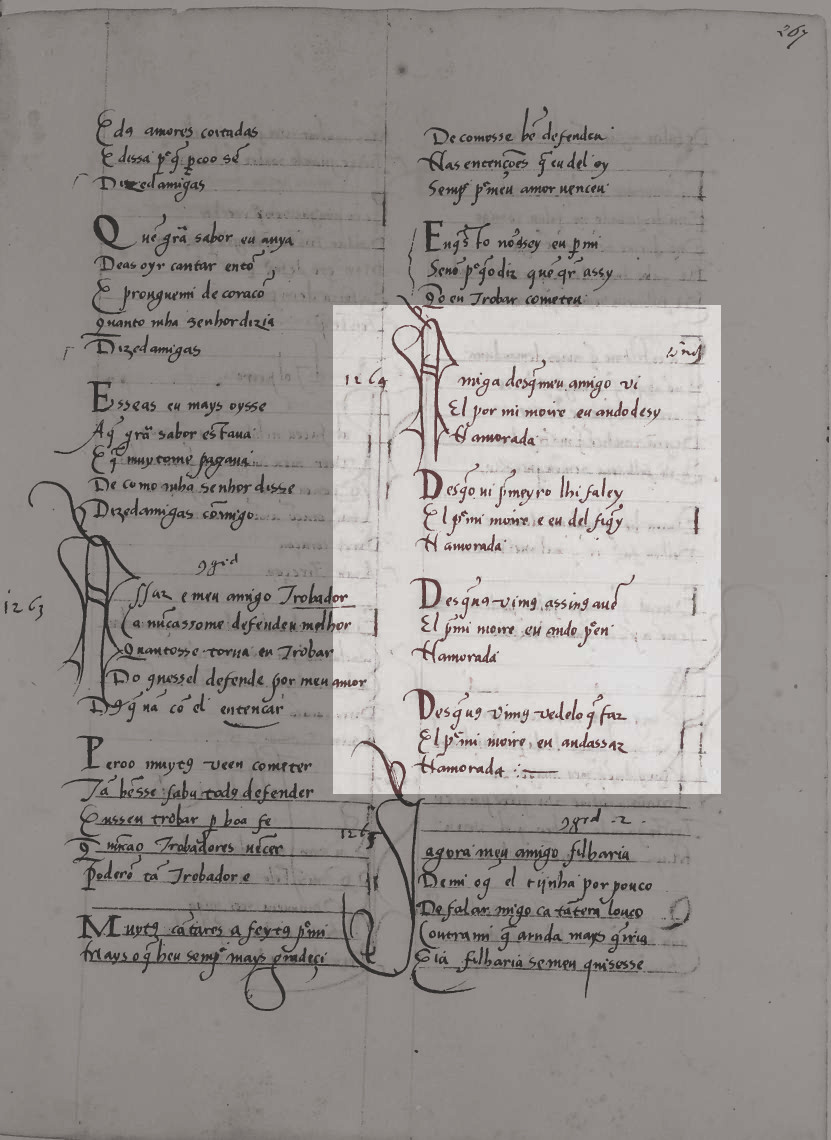 267
E das amores coitadas
E dissa p̃ q̃ p̃coo sẽ
Dizedamigas
Que grã sabor eu auya
Deas oyr cantar entõ
E prouguemi de coraçõ
Quanto mha senhor dizia
Dizedamigas
Esseas eu mays oysse
Aq̃ grã sabor estaua
E q̃ muytome pagaua
De como mha senhor disse
Dizedamigas comigo
1263
Assaz e meu amigo Trobador
Ca nũcassome defendeu melhor
Quantosse torna eu Trobar
Do quessel defende por meu amor
Dos q̃ uã cõ el entençar
Peroo muytꝯ ueen cometer
Tã bẽsse sabe todꝯ defender
Eusseu trobar p̃ boa fe
Q̃ nũcao Trobadores uẽcer
Poderõ tã Trobador e
Muytꝯ cãtares a feytꝯ p̃ mi
Mays o q̃ lheu semp̃ mays gradeçi
De comosse bẽ defendeu
Nas entenções q̃ eu del oy
Semp̃ p̃ meu amor uenceu
E aq̃sto nõ o ssey eu p̃ mi
Senõ p̃ q̃ o diz quẽ q̃r assy
Qo eu Trobar cometeu
1264
Amiga desq̃ meu amigo vi
El por mi moire eu ando desy
Namorada
Desq̃o ui p̃meyro lhi faley
El p̃ mi moire e eu del fiq̃y
Namorada
Desq̃nꝯ vimꝯ assinꝯ auẽ
El p̃ mi moire eu ando p̃ en
Namorada
Desq̃nꝯ vimꝯ vedelo q̃ faz
El p̃ mi moire eu andassaz
Namorada :~
1265
Ja agora meu amigo filharia
De mi o q̃ el tijnha por pouco
De falar migo ca tãtera louco
Contra mi q̃ ainda mays q̃ria
E ia filharia se meu quisesse